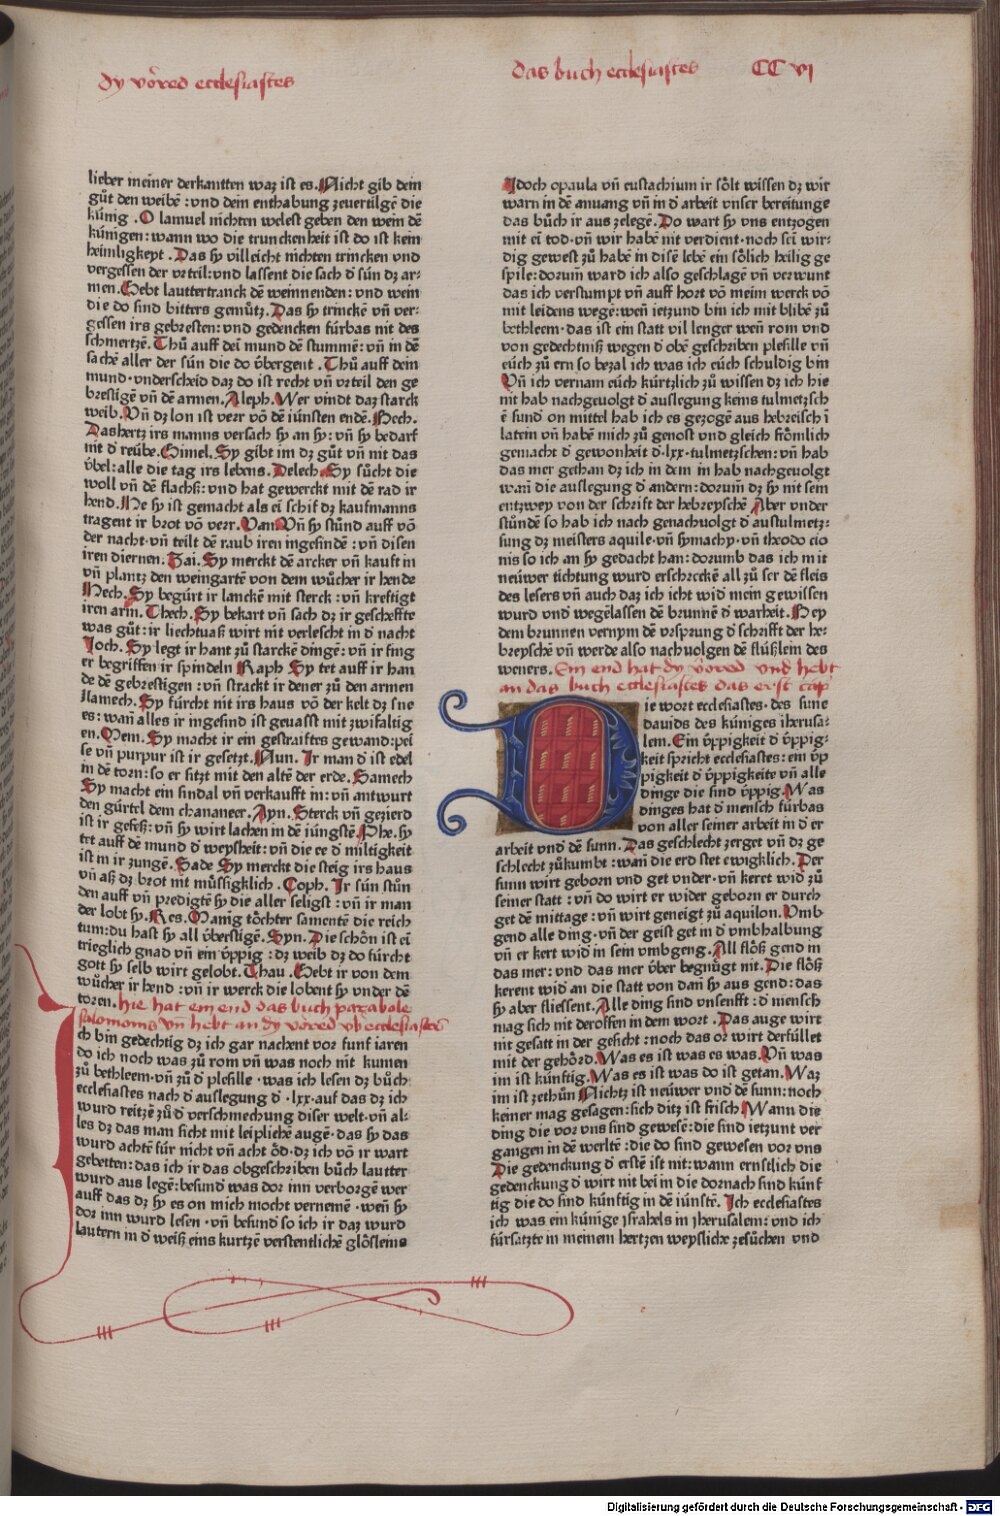 dy vored ecclesiastes
das buch ecclesiastes CC vi
lieber meiner derkantten waz ist es. Nicht gib dein
gůt den weibē : vnd dein enthabung zeuertilgē die
kúnig . O lamuel nichten welest geben den wein dē
kúnigen: wann wo die trunckenheit ist do ist kein
heimligkeyt . Das sy villeicht nichten trincken vnd
vergessen der vrteil: vnd lassent die sach d̄ sún dz ar-
men. Gebt lauttertranck dē weinnenden: vnd wein
die do sind bitters gemůtz. Das sy trinckē vn̄ ver-
gessen irs gebresten: vnd gedencken fúrbas nit des
schmertzē. Thů auff dei mund dē stummē: vn̄ in dē
sachē aller der sún die do v̇bergent . Thů auff dein
mund · vnderscheid daz do ist recht vn̄ vrteil den ge
brestigē vn̄ dē armen. Aleph. Wer vindt daz starck
weib. Vn̄ dz lon ist verr vō dē iúnsten endē. Bech.
Das hertz irs manns versach sy an sy: vn̄ sy bedarf
nit d̄ reúbe. Gimel. Sy gibt im dz gůt vn̄ nit das
v̇bel: alle die tag irs lebens. Delech. Sy sůcht die
woll vn̄ dē flachß: vnd hat gewerckt mit dē rad ir
hend. He sy ist gemacht als ei schif dz kaufmanns
tragent ir brot vō verr. Vau Vn̄ sy stůnd auff vō
der nacht · vn̄ teilt dē raub iren ingesindē : vn̄ disen
iren diernen. Zai. Sy merckt dē arcker vn̄ kauft in
vn̄ plantz den weingartē von dem wůcher ir hende
Hech. Sy begúrt ir lanckē mit sterck : vn̄ kreftigt
iren arm. Thech. Sy bekart vn̄ sach dz ir gescheffte
was gůt: ir liechtuaß wirt nit verlescht in d̄ nacht
Joch. Sy legt ir hant zů starckē dingē: vn̄ ir fing
er begriffen ir spindeln Raph Sy tet auff ir han
de dē gebrestigen : vn̄ strackt ir dener zů den armen
Lamech. Sy fúrcht nit irs haus vō der kelt dz sne
es: wan̄ alles ir ingesind ist geuasst mit zwifaltig
en. Mem. Sy macht ir ein gestraiftes gewand: pei
se vn̄ purpur ist ir gesetzt. Nun. Ir man d̄ ist edel
in dē torn: so er sitzt mit den altē der erde. Samech
Sy macht ein sindal vn̄ verkaufft in: vn̄ antwurt
den gúrtel dem chananeer. Ayn. Sterck vn̄ gezierd
ist ir geseß: vn̄ sy wirt lachen in dē iúngstē. Phe. Sy
tet auff dē mund d̄ weysheit: vn̄ die ee d̄ miltigkeit
ist in ir zungē. Sade Sy merckt die steig irs haus
vn̄ aß dz brot nit můssigklich . Coph. Ir sún stůn
den auff vn̄ predigtē sy die aller seligst : vn̄ ir man
der lobt sy. Res. Manig tôchter samentē die reich
tum: du hast sy all v̇berstigē. Syn. Die schôn ist ei
trieglich gnad vn̄ ein v̇ppig : dz weib dz do fúrcht
gott sy selb wirt gelobt. Thau . Gebt ir von dem
wůcher ir hend : vn̄ ir werck die lobent sy vnder dē
toren. hie hat ein end das buch parabole
salomonis vn̄ hebt an dy vored vb ecclesiastes
ch bin gedechtig dz ich gar nachent vor funf iaren
do ich noch was zů rom vn̄ was noch nit kumen
zů bethleem · vn̄ zů d̄ plesille · was ich lesen dz bůch
ecclesiastes nach d̄ auslegung d̄ · lxx · auf das dz ich
wurd reitzē zů d̄ verschmechung diser welt · vn̄ al-
les dz das man sicht mit leiplichē augē · das sy das
wurd achtē fúr nicht vn̄ acht ôd · dz ich vō ir wart
gebetten: das ich ir das obgeschriben bůch lautter
wurd aus legē: besund was dor inn verborgē wer
auff das dz sy es on mich mocht vernemē · wen̄ sy
dor inn wurd lesen · vn̄ besund so ich ir daz wurd
lautern in d̄ weiß eins kurtzē verstentlichē glôsleins
Jdoch o paula vn̄ eustachium ir sôlt wissen dz wir
warn in dē anuang vn̄ in d̄ arbeit vnser bereitunge
das bůch ir aus zelegē. Do wart sy vns entzogen
mit ei tod · vn̄ wir habē nit verdient · noch sei wir-
dig gewest zů habē in disē lebē ein sôlich heilig ge
spile: dorum̄ ward ich also geschlagē vn̄ verwunt
das ich verstumpt vn̄ auff hort vō meim werck vō
mit leidens wegē: wen̄ ietzund bin ich mit blibē zů
bethleem · das ist ein statt vil lenger wen̄ rom vnd
von gedechtniß wegen d̄ obē geschriben plesille vn̄
eúch zů ern so bezal ich was ich eúch schuldig bin
Vn̄ ich vernam eúch kúrtzlich zů wissen dz ich hie
nit hab nachgeuolgt d̄ auslegung keins tulmetzsch
ē sund̄ on mittel hab ich es gezogē aus hebreisch ī
latein vn̄ habē mich zů genost vnd gleich frômlich
gemacht d̄ gewonheit d̄ · lxx · tulmetzschen: vn̄ hab
das mer gethan dz ich in dem in hab nachgeuolgt
wan̄ die auslegung d̄ andern: dorum̄ dz sy nit sein
entzwey von der schrift der hebreyschē Aber vnder
stůndē so hab ich nach genachuolgt d̄ austulmetz-
sung dz meisters aquile · vn̄ symachy · vn̄ theodo cio
nis so ich an sy gedacht han: dorumb das ich mit
neúwer tichtung wurd erschreckē all zů ser dē fleis
des lesers vn̄ auch daz ich icht wid̄ mein gewissen
wurd vnd wegēlassen dē brunnē d̄ warheit. Ney
dem brunnen vernym dē vrsprung d̄ schrifft der he-
breyschē vn̄ werde also nachuolgen dē flúßlein des
weners. Ein end hat dy vored vnd hebt
an das buch ecclesiastes das erst capi
ie wort ecclesiastes · des sune
dauids des kúniges iherusa-
lem. Ein v̇ppigkeit d̄ v̇ppig-
keit spricht ecclesiastes: ein v̇p
pigkeit d̄ v̇ppigkeitē vn̄ alle
dinge die sind v̇ppig. Was
dinges hat d̄ mensch fúrbas
von aller seiner arbeit in d̄ er
arbeit vnd̄ dē sunn. Das geschlecht zerget vn̄ dz ge
schlecht zůkumbt: wan̄ die erd stet ewigklich. Der
sunn wirt geborn vnd get vnder · vn̄ keret wid̄ zů
seiner statt : vn̄ do wirt er wider geborn er durch
get dē mittage : vn̄ wirt geneigt zů aquilon. Vmb
gend alle ding · vn̄ der geist get in d̄ vmbhalbung
vn̄ er kert wid̄ in sein vmbgeng. All flôß gend in
das mer: vnd das mer v̇ber begnúgt nit. Die flôß
kerent wid̄ an die statt von dan̄ sy aus gend: das
sy aber fliessent. Alle ding sind vnsenfft : d̄ mensch
mag sich nit deroffen in dem wort . Das auge wirt
nit gesatt in der gesicht: noch das or wirt derfúllet
mit der gehôrd. Was es ist was es was. Vn̄ was
im ist kúnftig. Was es ist was do ist getan. Waz
im ist zethůn Nichtz ist neúwer vnd̄ dē sunn: noch
keiner mag gesagen: sich ditz ist frisch Wann die
ding die vor vns sind gewesē: die sind ietzunt ver
gangen in dē werltē : die do sind gewesen vor vns
Die gedenckung d̄ erstē ist nit: wann ernstlich die
gedenckung d̄ wirt nit bei in die dornach sind kúnf
tig die do sind kúnftig in dē iúnstē. Ich ecclesiastes
ich was ein kúnige israhels in jherusalem: vnd ich
fúrsatzte in meinem hertzen weyslich zesůchen vnd
Digitalisierung gefördert durch die Deutsche Forschungsgemeinschaft - DFG